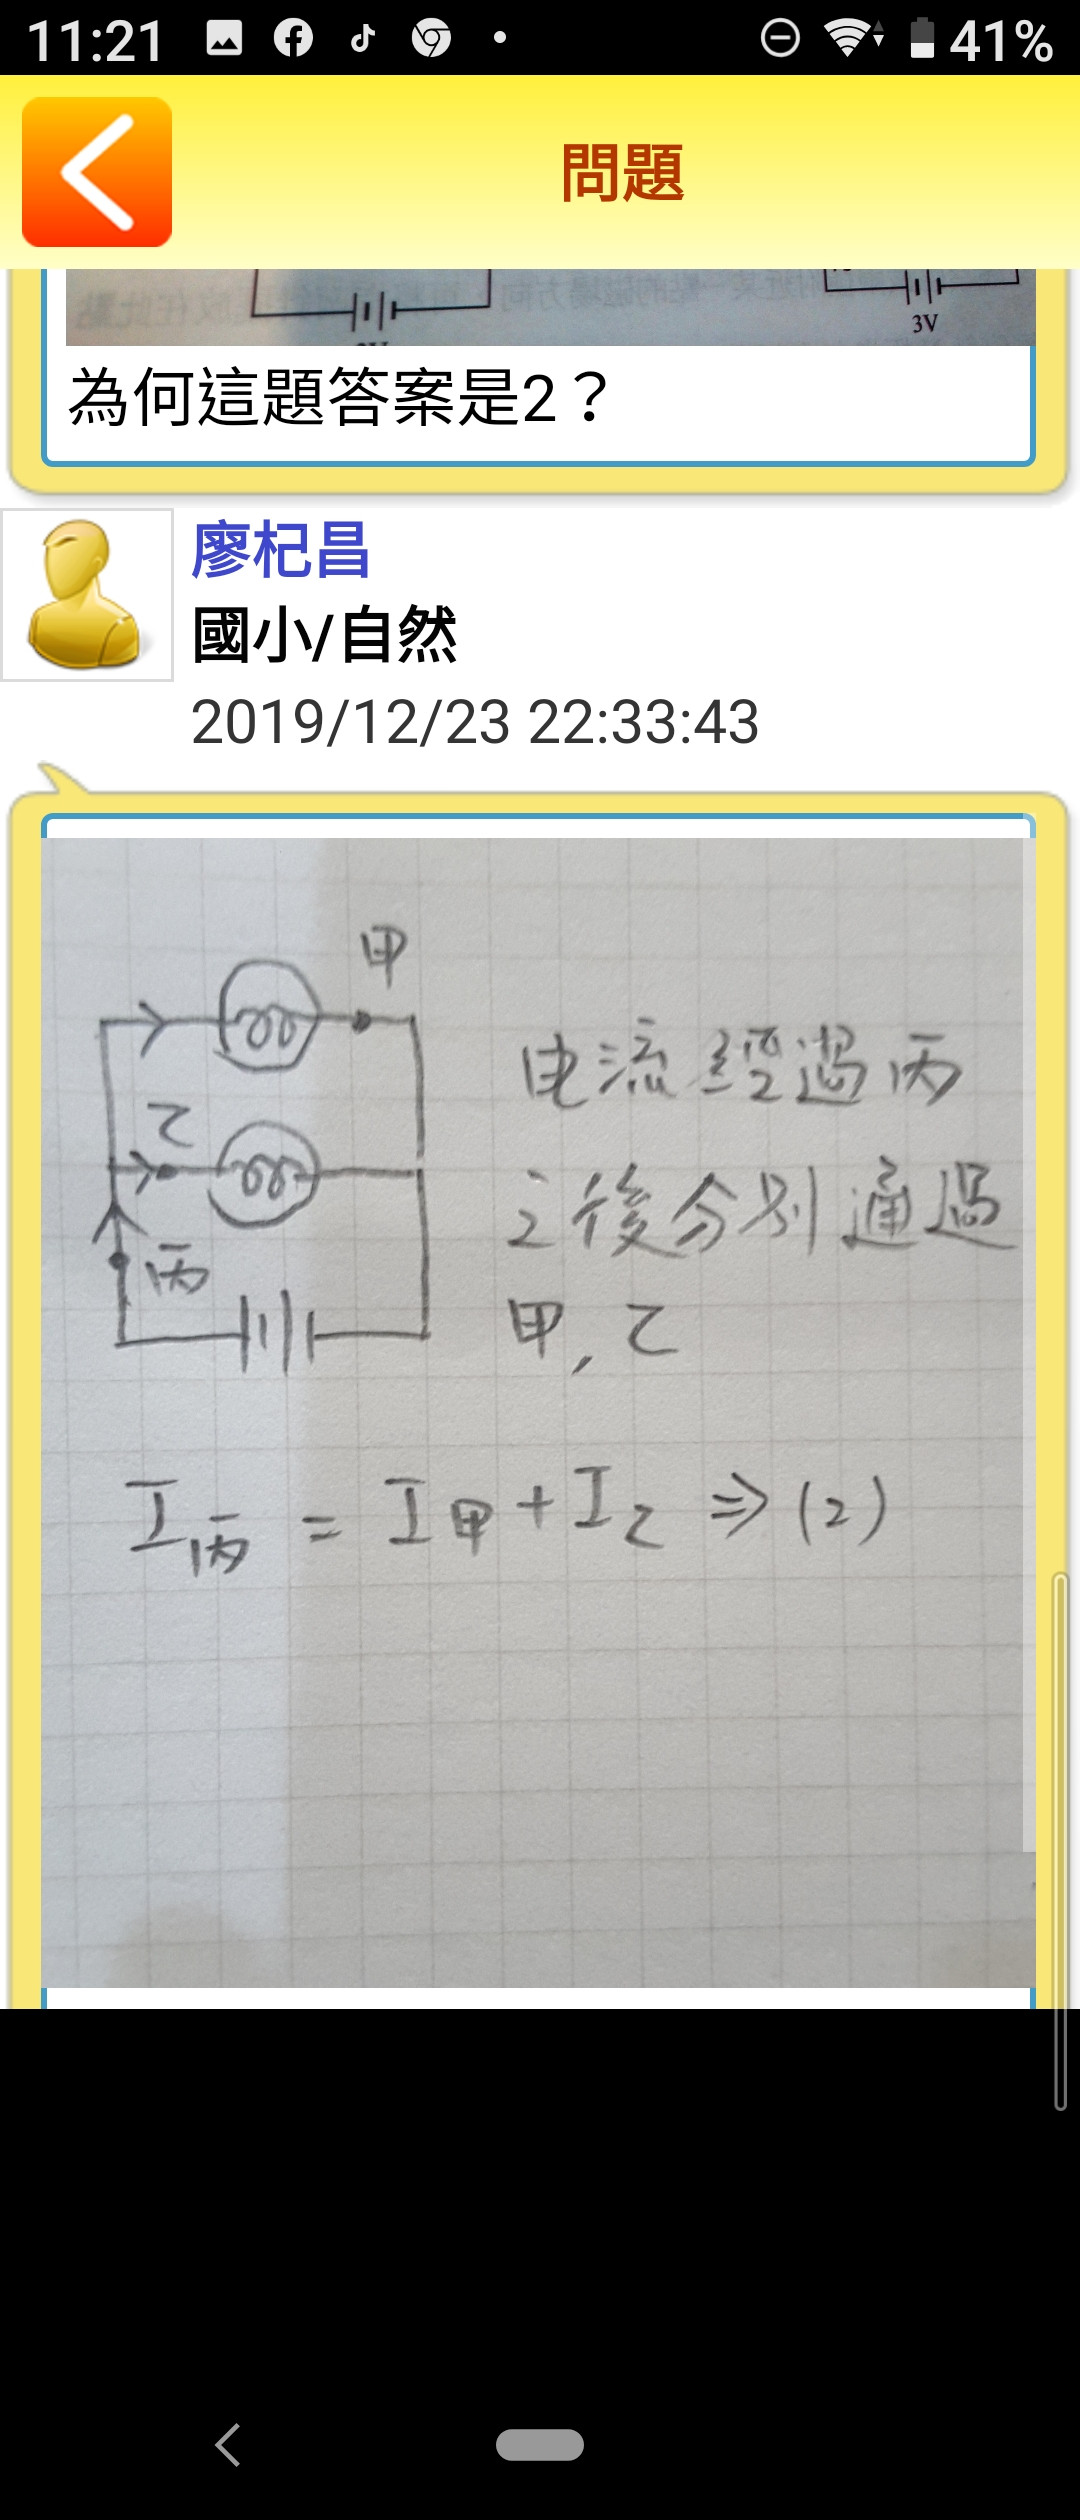 11:21
41%
問題
3V
為何這題答案是2？
廖杞昌
國小/自然
2019/12/23 22:33:43
甲
乙
丙
电流經過丙
之後分別通過
甲,乙
I丙 = I甲 + I乙 ⇒ (2)